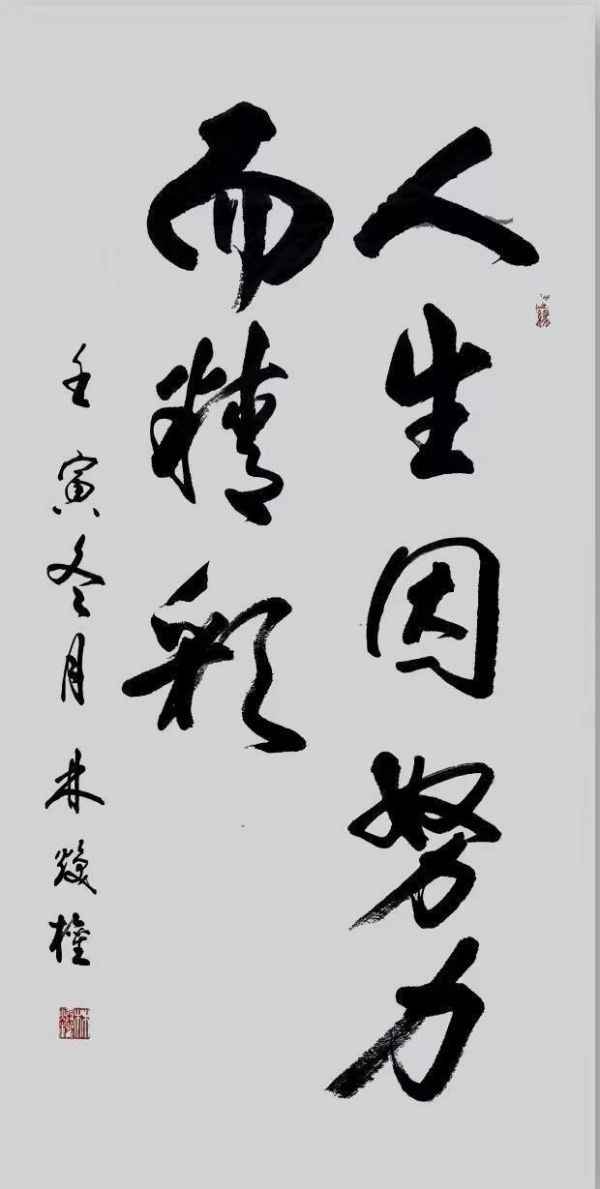 人生因努力
而精彩
壬寅冬月林